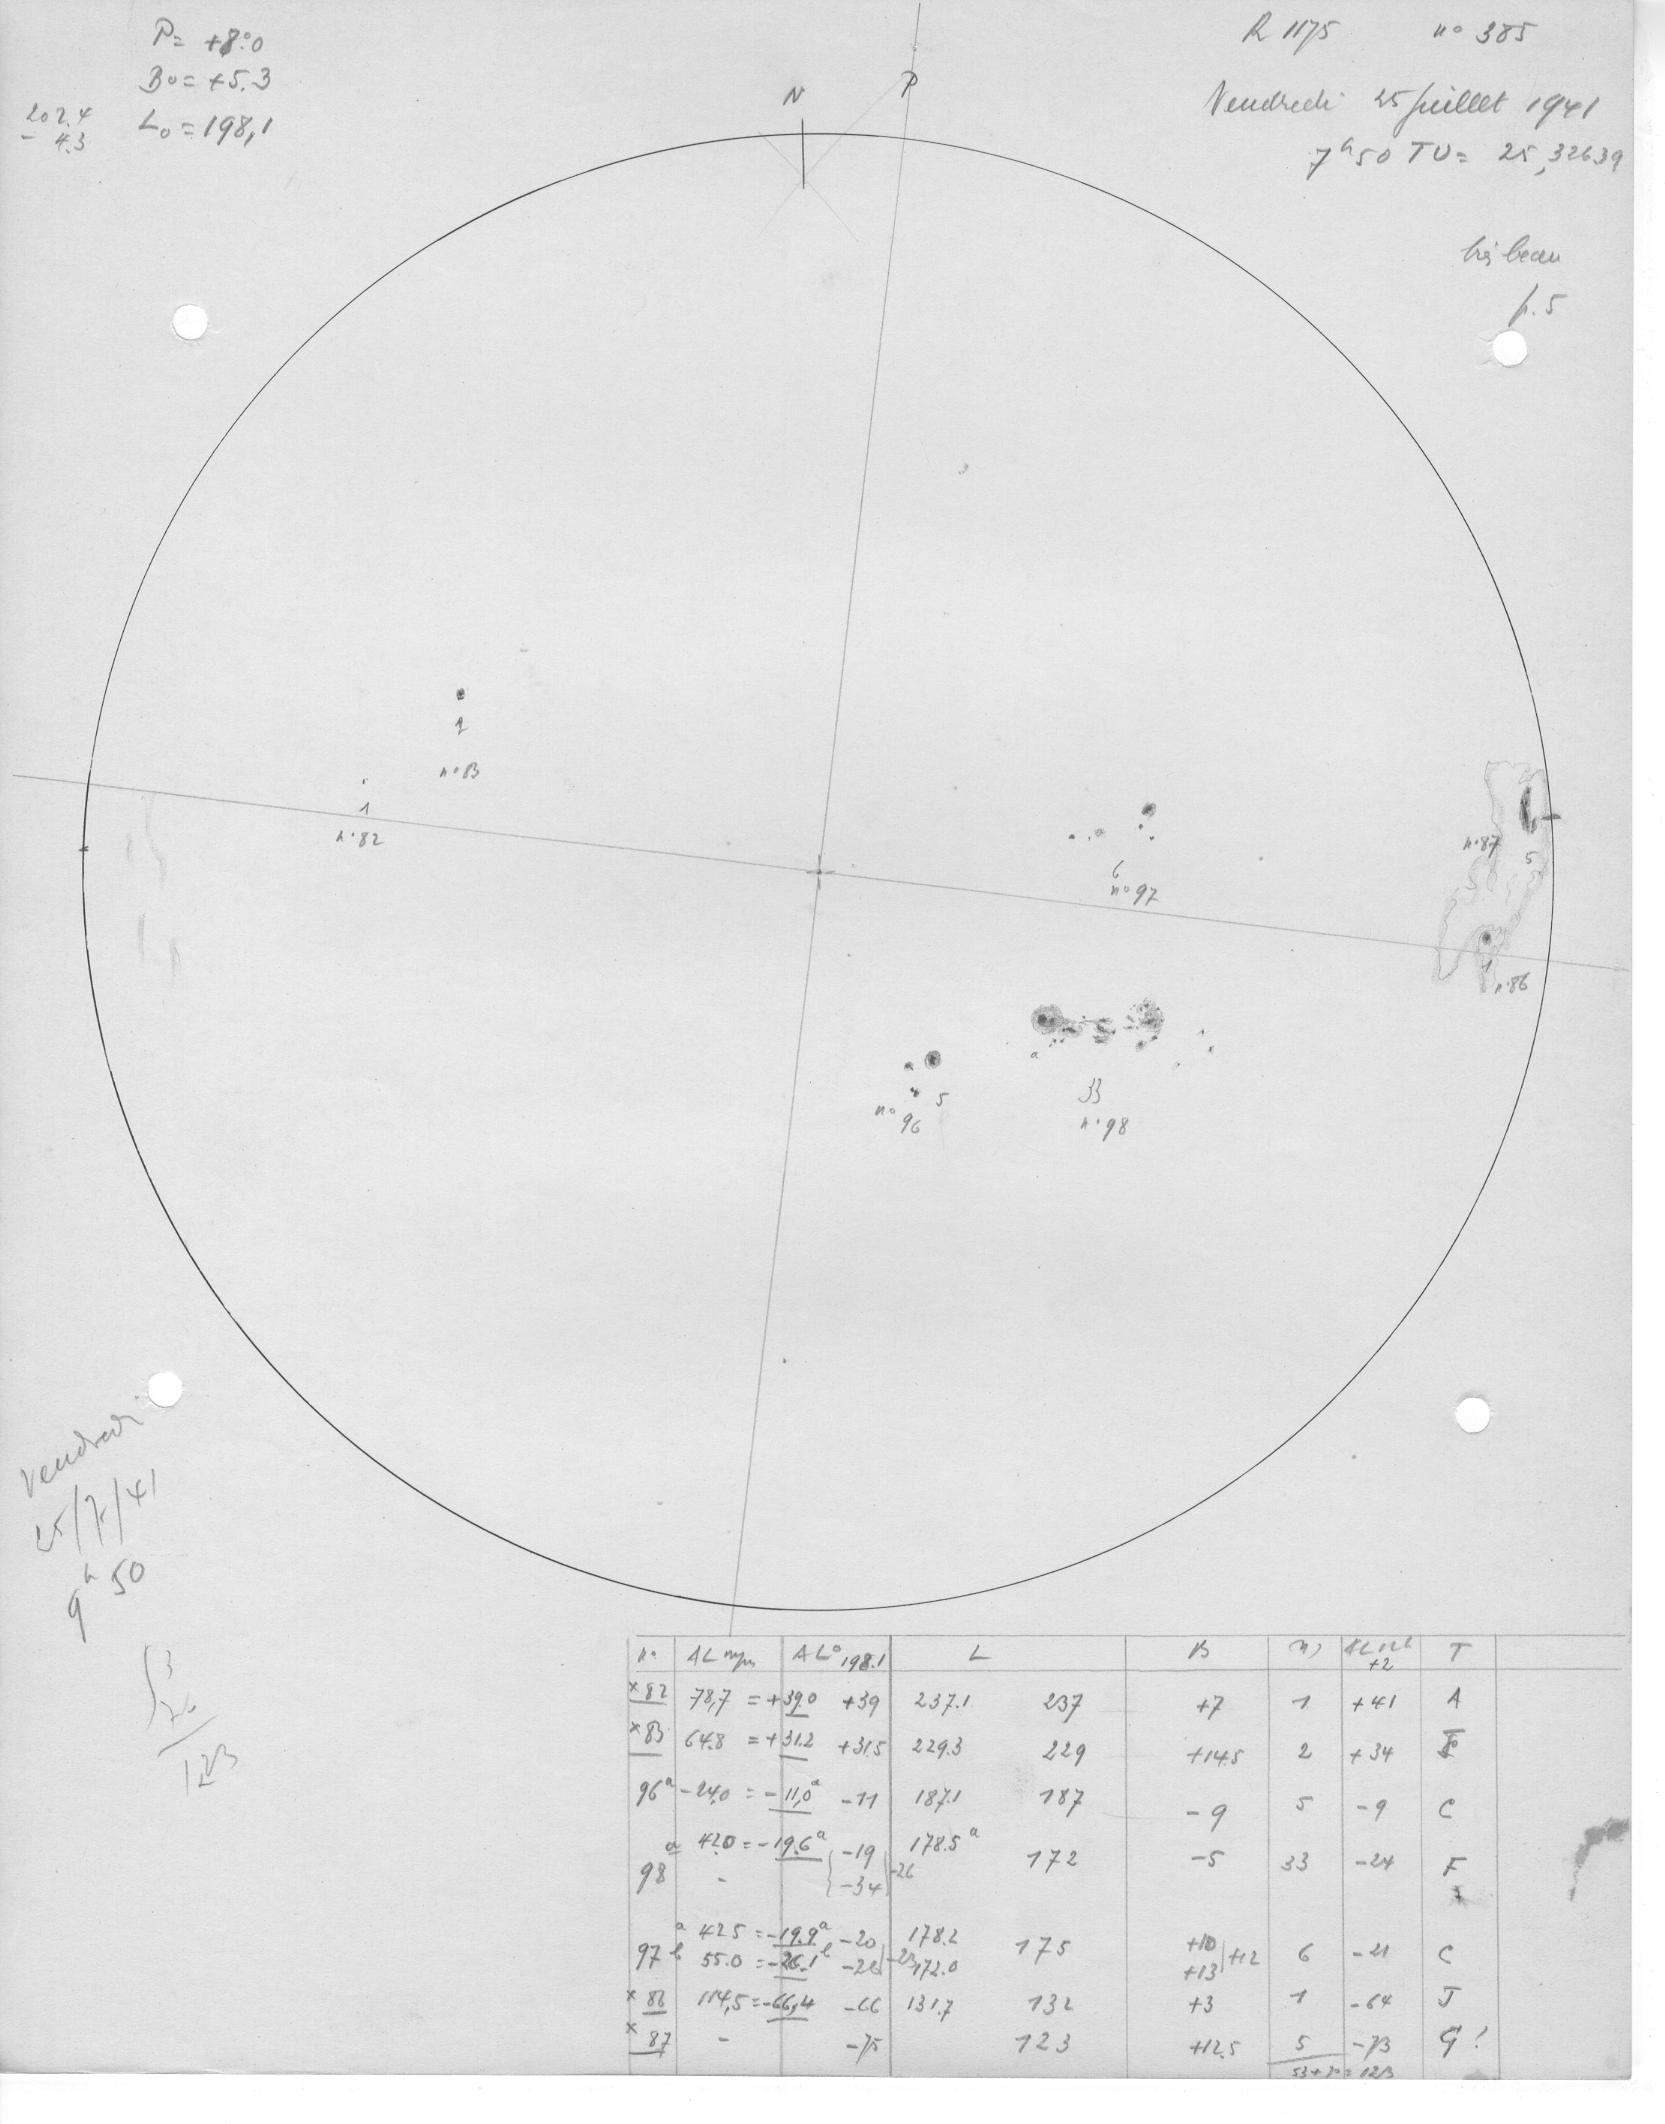 P= +8°0
B₀= +5.3
L₀= 198,1
202.4
- 4.3
R 1175 n° 385
Vendredi 25 juillet 1941
7h50 TU= 25,32639
très beau
p.5
N
P
2
n°83
1
n°82
6
n°97
n°87
5
1
n°86
a
a
5
n°96
33
n°98
Vendredi
25/7/41
9h50
53
70
123
n° L B T
+2
198.1
×82 78,7 = +39.0 +39 237.1 237 +7 1 +41 A
×83 64.8 = +31.2 +31.5 229.3 229 +14.5 2 +34
96a -24.0 = -11,0a -11 187.1 187 -9 5 -9 C
98 a 42.0 = -19.6a -19 178.5a 172 -5 33 -24 F
- -34 -26
97 a 42.5 = -19.9a -20 178.2 175 +10 +12 6 -21 C
b 55.0 = -26.1b -26 -23 172.0 +13
×86 114,5 = -66,4 -66 131.7 132 +3 1 -64 J
×87 - -75 123 +12.5 5 -73 G!
53+70=123